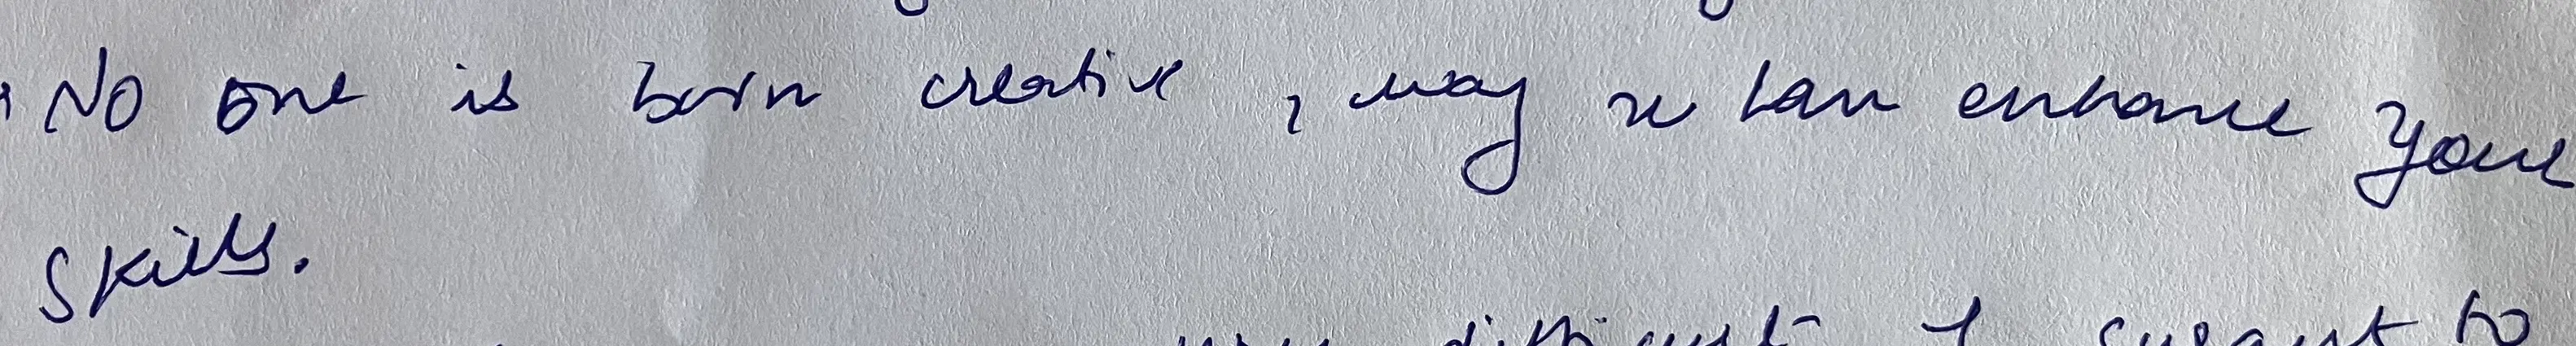 No one is born creative, way u can enhance your
skills.
difficult I to